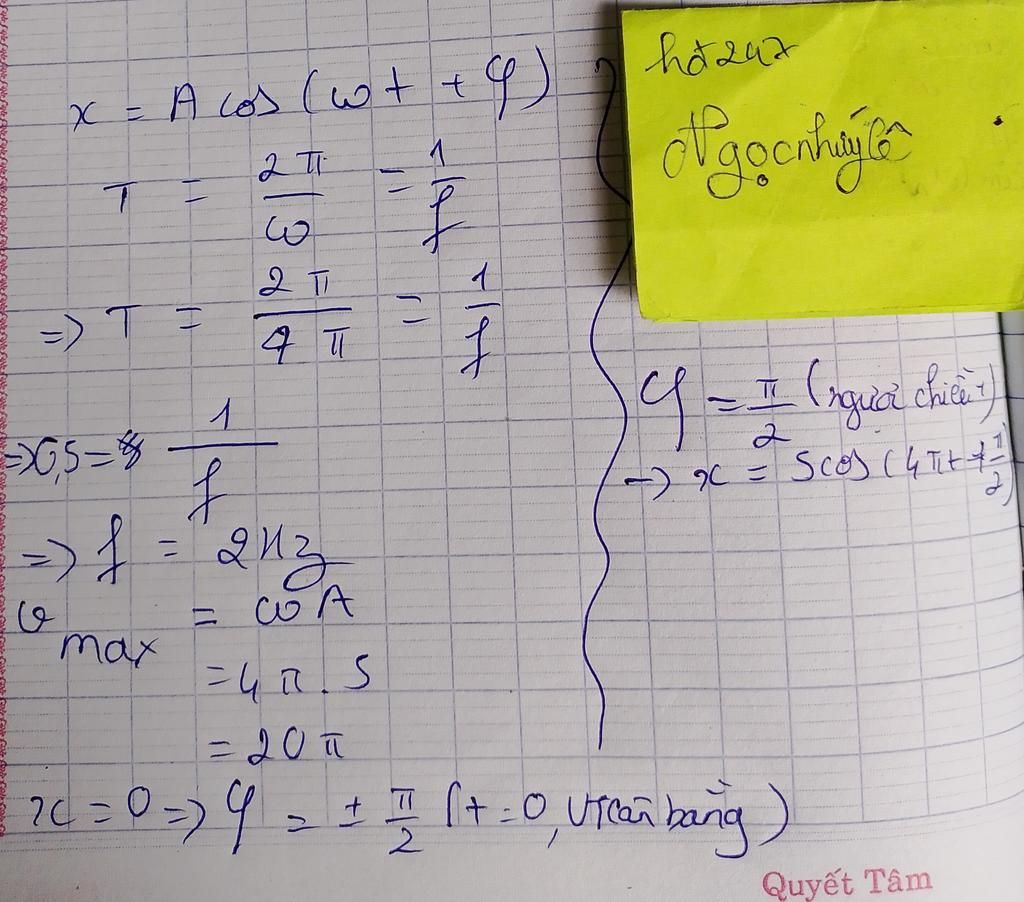 x = A cos (ωt + φ)
T = 2π/ω = 1/f
=> T = 2π/4π = 1/f
=> 0,5 = 1/f
=> f = 2Hz
v max = ωA
= 4π . 5
= 20π
x = 0 => φ = ± π/2 (t = 0, VT cân bằng)
hd247
Ngọcnhuýlê
φ = π/2 (ngược chiều)
-> x = 5cos (4πt + π/2)
Quyết Tâm